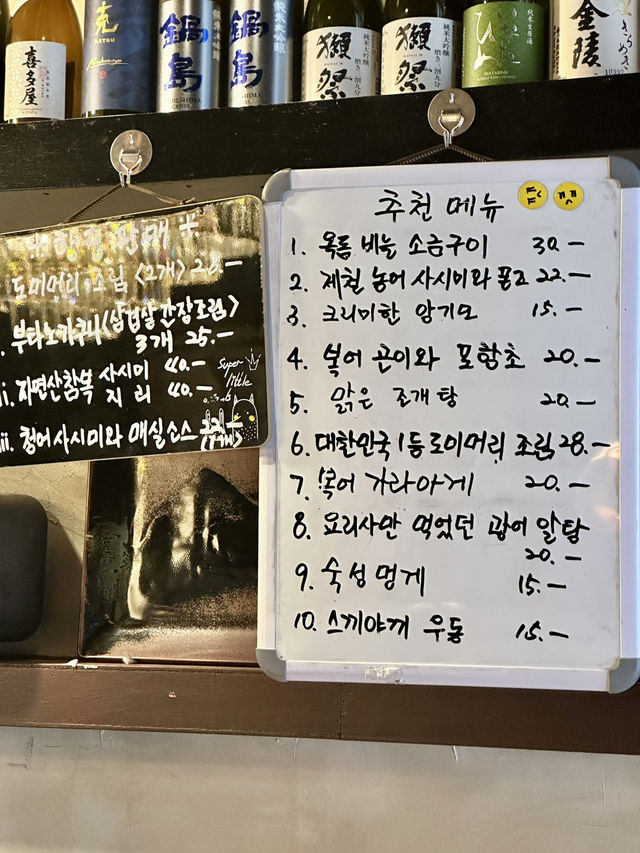 喜多屋
克
鍋島
鍋島
純米大吟醸
獺祭
磨き三割九分
純米大吟醸
獺祭
磨き三割九分
純米生原酒
金陵
한정판매
도미머리 조림 <2개> 28.-
부타노카쿠니<삼겹살 간장조림>
3개 25.-
ii. 자연산참복 사시미 40.-
지리 40.-
super
little
iii. 청어사시미와 매실소스
추천 메뉴
1. 옥돔 비늘 소금구이 30.-
2. 제철 농어 사시미와 폰즈 22.-
3. 크리미한 앙기모 15.-
4. 복어 곤이와 포항초 20.-
5. 맑은 조개탕 20.-
6. 대한민국 1등 도미머리 조림 28.-
7. 복어 가라아게 20.-
8. 요리사만 먹었던 광어 알탕
20.-
9. 숙성 멍게 15.-
10. 스끼야끼 우동 15.-